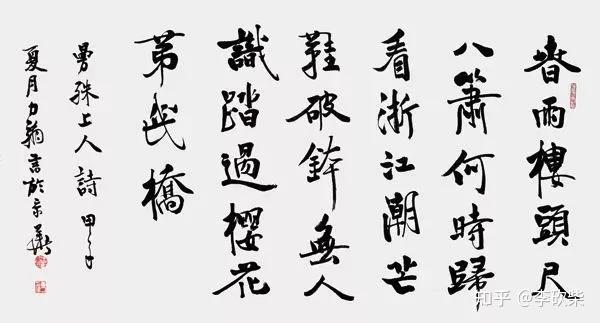 春雨樓頭尺
八簫何時歸
看浙江潮芒
鞋破鉢無人
識踏過櫻花
第幾橋
曼殊上人詩 甲午
夏月力翰書於京華
知乎 @李砍柴